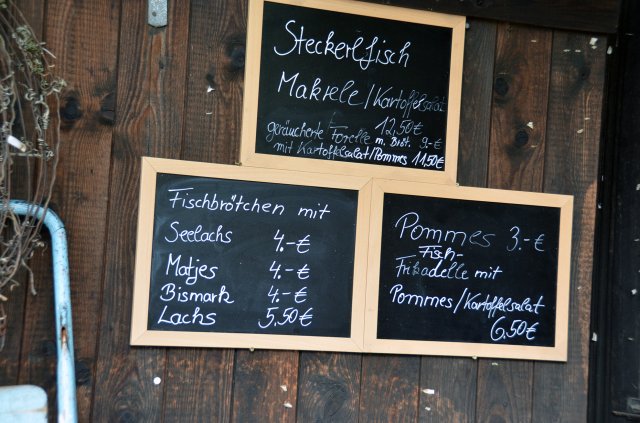 Steckerlfisch
Makrele/Kartoffelsalat
12,50€
geräucherte Forelle m. Bröt. 9.-€
mit Kartoffelsalat/Pommes 11,50€
Fischbrötchen mit
Seelachs 4.-€
Matjes 4.-€
Bismark 4.-€
Lachs 5,50€
Pommes 3.-€
Fisch-
Frikadelle mit
Pommes/Kartoffelsalat
6,50€